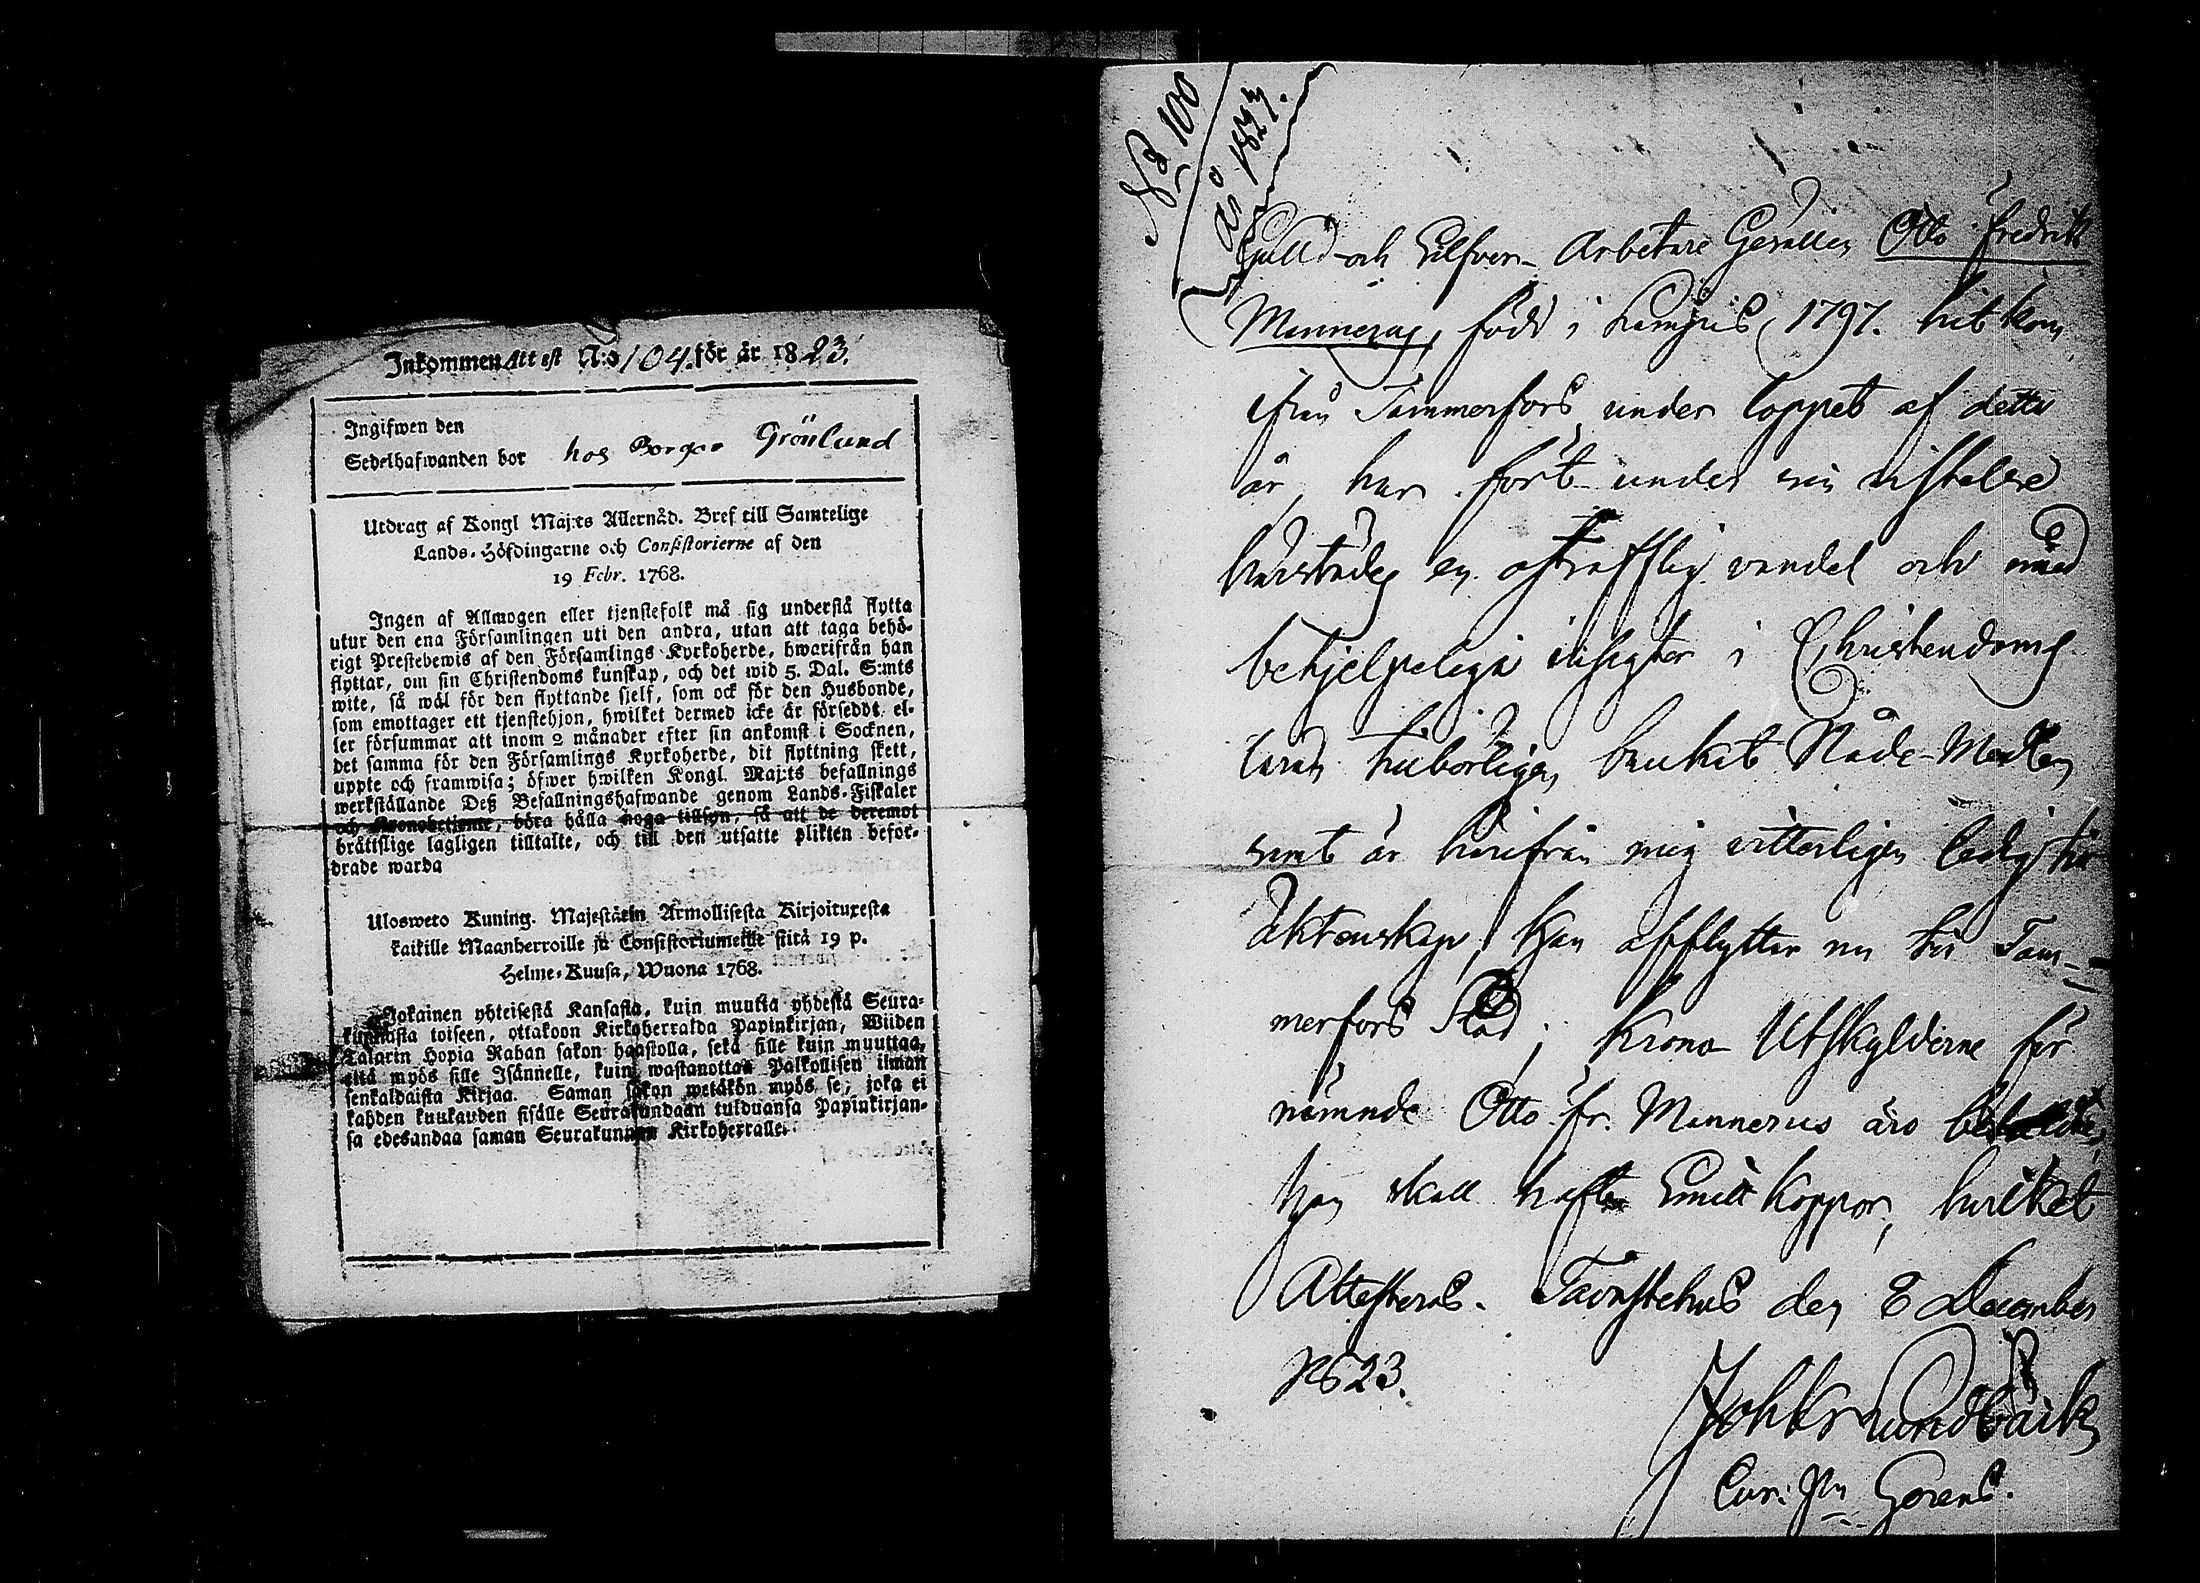 Inkommen Attest N:o 104. för år 1823.
Ingifwen den
Sedelhafwanden bor hos Borgar Grönlund
Utdrag af Kongl Maj:ts Allernåd. Bref till Samtelige
Lands-Höfdingarne och Consistorierne af den
19 Febr. 1768.
Ingen af Allmogen eller tjenstefolk må sig understå flytta
utur den ena Församlingen uti den andra, utan att taga behö-
rigt Prestebewis af den Församlings Kyrkoherde, hwarifrån han
flyttar, om sin Christendoms kunskap, och det wid 5. Dal. S:mts
wite, så wäl för den flyttande sjelf, som ock för den Husbonde,
som emottager ett tjenstehjon, hwilket dermed icke är försedt el-
ler försummar att inom 2 månader efter sin ankomst i Socknen,
det samma för den Församlings Kyrkoherde, dit flyttning skett,
uppte och framwisa; öfwer hwilken Kongl. Maj:ts befallnings
werkställande Deß Befallningshafwande genom Lands-Fiskaler
och Kronobetjente, böra hålla noga tillsyn, så att de deremot
bråttslige lagligen tilltalte, och till den utsatte plikten befor-
drade warda
Ulosweto Kuning. Majestätin Armollisesta Kirjoituxesta
kaikille Maanherroille ja Consistoriumeille siitä 19 p.
Helme-Kuusa, Wuona 1768.
Jokainen yhteisestä Kansasta, kuin muutta yhdestä Seura-
kunnasta toiseen, ottakoon Kirkoherralda Papinkirjan, Wiiden
Talarin Hopia Rahan sakon haastolla, sekä sille kuin muuttaa,
että myös sille Isännelle, kuin wastanottaa Palkollisen ilman
senkaldaista Kirjaa. Saman sakon wetäkön myös se, joka ei
kahden kuukauden sisälle Seurakundaan tulduansa Papinkirjan-
sa edesandaa saman Seurakunnan Kirkoherralle.
No 100
Guld och Silfver-Arbetare Gesällen Otto Fredrik
Mannerus, född i Kempis 1797. hit kom
ifrån Tammerfors under loppet af detta
år, har fört under sin vistelse
härstädes en ostrafflig vandel och med
behjelpeliga insigter i Christendoms
läran tillbörligen brukat Nåde-Medlen
samt är härifrån mig vitterligen ledig till
Äktenskap, han afflyttar nu till Tam-
merfors Stad; Krono Utskylderne för
nämnde Otto Fr. Mannerus äro betalde,
han skall haft Smitt koppor, hvilket
Attesteras. Tavastehus den 8 December
1823.
Joh Er Lundbäck